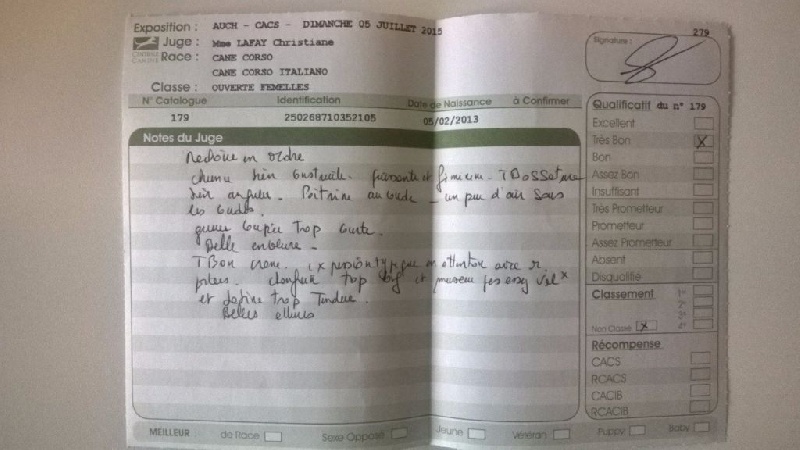 Exposition : AUCH - CACS - DIMANCHE 05 JUILLET 2015
279
Juge : Mme LAFAY Christiane
Signature :
Race : CANE CORSO
CANE CORSO ITALIANO
Classe : OUVERTE FEMELLES
N° Catalogue Identification Date de Naissance à Confirmer
179 250268710352105 05/02/2013
Notes du Juge
en ordre
chienne bien construite. puissante et féminine. TB ossature
bien angulée. Poitrine au coude - un peu d'air sous
les coudes.
queue coupée trop courte.
Belle encolure -
T Bon crâne. expression typique attention avec
trop et museau pas assez
et trop tendue.
Belles allures
Qualificatif du n° 179
Excellent
Très Bon X
Bon
Assez Bon
Insuffisant
Très Prometteur
Prometteur
Assez Prometteur
Absent
Disqualifié
Classement 1er
2e
3e
Non Classé X 4e
Récompense
CACS
RCACS
CACIB
RCACIB
MEILLEUR de Race Sexe Opposé Jeune Vétéran Puppy Baby